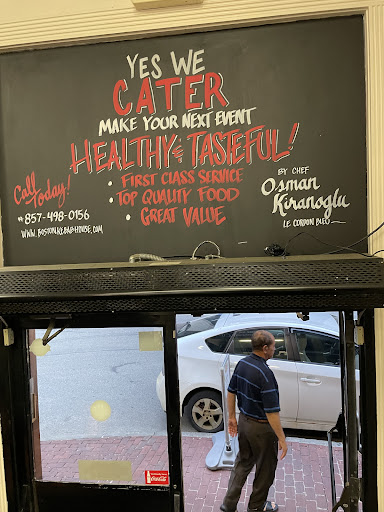 YES WE
CATER
MAKE YOUR NEXT EVENT
HEALTHY & TASTEFUL!
Call Today!
857-498-0156
WWW.BOSTONKEBABHOUSE.COM
• FIRST CLASS SERVICE
• TOP QUALITY FOOD
• GREAT VALUE
BY CHEF
Osman
Kiranoglu
LE CORDON BLEU
Coca-Cola